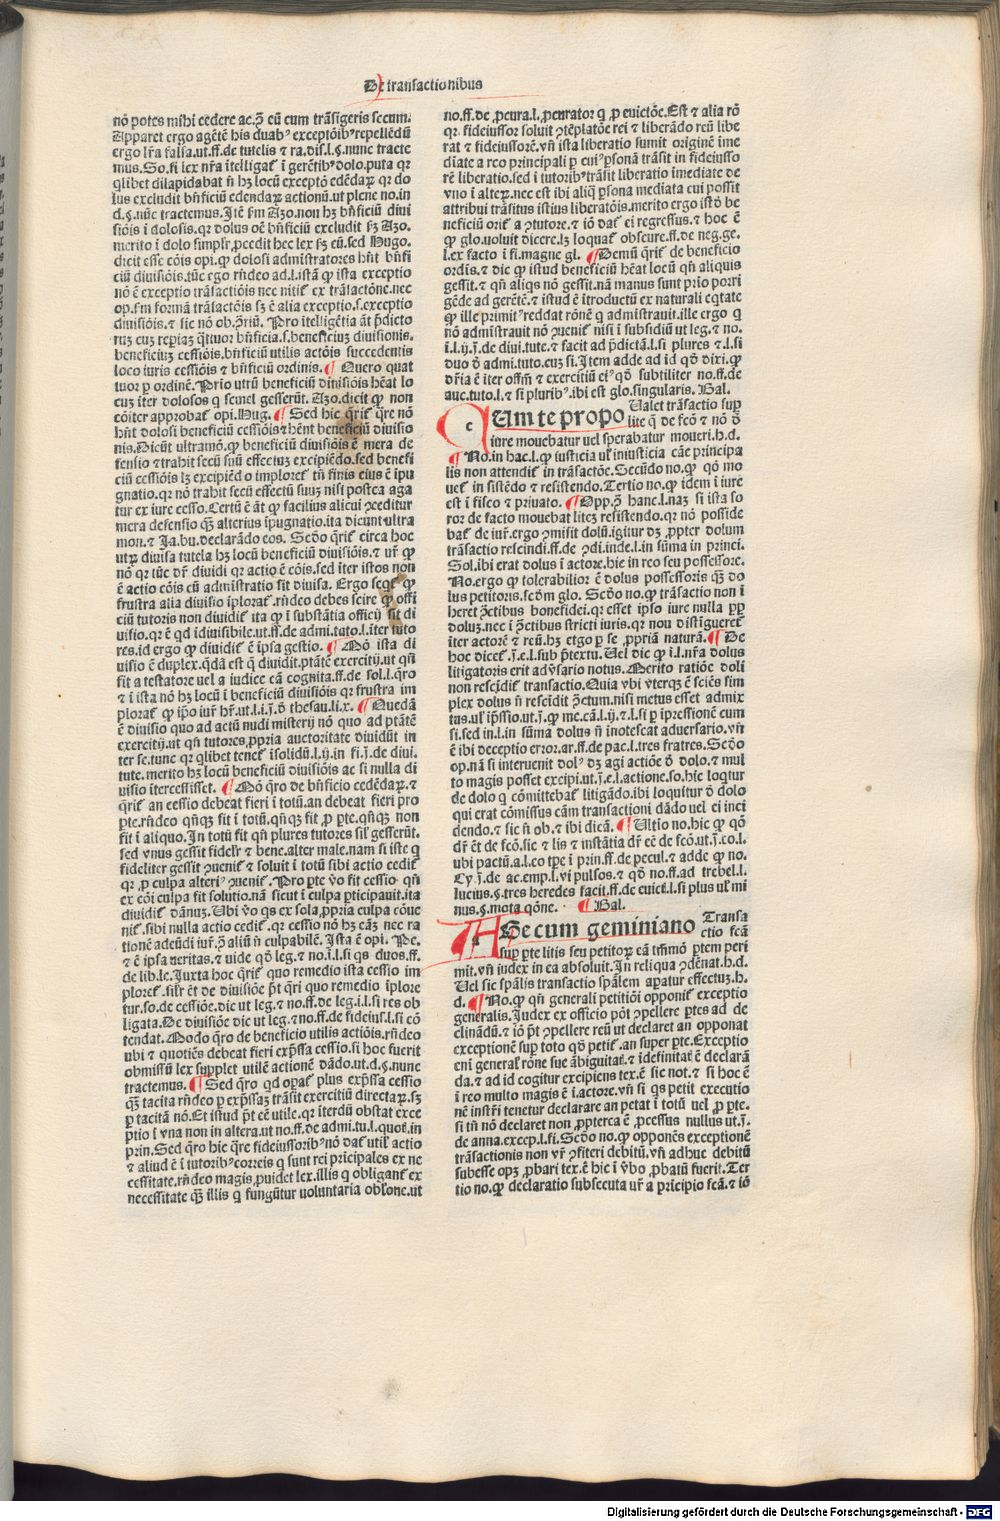 De transactionibus
nō potes mihi cedere ac.ꝯ̄ eū cum trāsigeris secum.
Apparet ergo agētē his duabꝰ exceptōibꝰ repellēdū
ergo lr̄a falsa.ut.ff.de tutelis ⁊ ra.dis.l.ç.nunc tracte
mus.So.si lex nr̄a ītelligat̄ ī gerētibꝰ dolo.puta qr
qlibet dilapidabat n̄ hꝫ locū exceptō edēdaꝝ qr do
lus excludit bn̄ficiū edendaꝝ actionū.ut plene no.in
d.ç.nūc tractemus.Itē ẜm Azo.non hꝫ bn̄ficiū diui
siōis ī dolosis.qr dolus oē bn̄ficiū excludit ẜꝫ Azo.
merito ī dolo simplr̄ ꝓcedit hec lex ẜꝫ eū.sed Hugo.
dicit esse cōis opi.ꝙ dolosi admīstratores hn̄t bn̄fi
ciū diuisiōis.tūc ergo rn̄deo ad.l.istā ꝙ ista exceptio
nō ē exceptio trāsactiōis nec nitit̄ ex trāsactōne.nec
op.ẜm formā trāsactōis ẜꝫ ē alia exceptio.s.exceptio
diuisiōis.⁊ sic nō ob.ꝯ̄riū. Pro ītelligētia āt p̄dicto
rum cuꝫ reꝑiaꝫ q̄tuor bn̄ficia.s.beneficiuꝫ diuisionis.
beneficiuꝫ cessiōis.bn̄ficiū utilis actōis succedentis
loco iuris cessiōis ⁊ bn̄ficiū ordinis. ¶ Quero quat
tuor ꝑ ordinē. Prīo utrū beneficiū diuisiōis hēat lo
cuꝫ īter dolosos q̄ semel gesserūt. Azo.dicit ꝙ non
cōiter approbat̄ opi.Hug. ¶ Sed hic q̄rit̄ q̄re nō
hn̄t dolosi beneficiū cessiōis ⁊ hēnt beneficiū diuisio
nis.Dicūt ultramō.ꝙ beneficiū diuisiōis ē mera de
fensio ⁊ trahit secū suū effectuꝫ excipiēdo.sed benefi
ciū cessiōis lꝫ excipiēdo imploret̄ tn̄ finis eius ē ipu
gnatio.qr nō trahit secū effectū suuꝫ nisi postea aga
tur ex iure cesso.Certū ē āt ꝙ facilius alicui ꝯceditur
mera defensio q̄ꝫ alterius īpugnatio.ita dicunt ultra
mon.⁊ Ja.bu.declarādo eos. Scd̄o q̄rit̄ circa hoc
utꝝ diuīsa tutela hꝫ locū beneficiū diuisiōis.⁊ ur̄ ꝙ
nō qr tūc dr̄ diuidi qr actio ē cōis.sed īter istos non
ē actio cōis cū admīstratio sit diuisa. Ergo seqt̄ ꝙ
frustra alia diuisio īplorat̄.rn̄deo debes scire ꝙ offi
ciū tutoris non diuidit̄ ita ꝙ ī substātia officij sit di
uisio.qr ē qd īdiuisibile.ut.ff.de admi.tuto.l.īter tuto
res.id ergo ꝙ diuidit̄ ē īpsa gestio. ¶ Nō ista di
uisio ē duplex.q̄dā est q̄ diuidit.ptātē exercitij.ut qn̄
sit a testatore uel a iudice cā cognita.ff.de sol.l.q̄ro
⁊ ī ista nō hꝫ locū ī beneficiū diuisiōis qr frustra im
plorat̄ ꝙ ip̄o iur̄ hr̄.ut.l.i.j̄.ō thesau.li.x. ¶ Quedā
ē diuisio quo ad actū nudi misterij nō quo ad ptātē
exercitij.ut qn̄ tutores ꝓpria auctoritate diuidūt in
ter se.tunc qr qlibet tenet̄ īsolidū.l.ij.in fi.j̄.de diui.
tute.merito hꝫ locū beneficiū diuisiōis ac si nulla di
uisio ītercessisset. ¶ Nō q̄ro de bn̄ficio cedēdaꝝ.⁊
q̄rit̄ an cessio debeat fieri ī totū.an debeat fieri pro
ꝑte.rn̄deo qn̄qꝫ fit ī totū.qn̄qꝫ fit ꝓ ꝑte.qn̄qꝫ non
fit ī aliquo.In totū fit qn̄ plures tutores sil̄ gesserūt.
sed vnus gessit fidelr̄ ⁊ bene.alter male.nam si iste q̄
fideliter gessit ꝯuenit̄ ⁊ soluit ī totū sibi actio cedit̄
qr ꝓ culpa alteriꝰ ꝯuenit̄. Pro ꝑte v̄o fit cessio qn̄
ex cōi culpa fit solutio.nā sicut ī culpa ꝑticipauit.ita
diuidit̄ dānuꝫ.Ubi v̄o qs ex sola ꝓpria culpa cōue
nit̄.sibi nulla actio cedit̄.qr cessio nō hꝫ cāꝫ nec ra
tionē adeūdi iur̄.ꝯ̄ aliū n̄ culpabilē. Ista ē opi. Pe.
⁊ ē ipsa ueritas.⁊ uide qd̄ leg.⁊ no.ī.l.si qs duos.ff.
de lib.le.Juxta hoc q̄rit̄ quo remedio ista cessio im
ploret̄.silr̄ ēt de diuisiōe p̄t q̄ri quo remedio īplore
tur.so.de cessiōe.dic ut leg.⁊ no.ff.de leg.i.l.si res ob
ligata.De diuisiōe dic ut leg.⁊ no.ff.de fideius.l.si cō
tendat. Modo q̄ro de beneficio utilis actiōis.rn̄deo
ubi ⁊ quotiēs debeat fieri exp̄ssa cessio.si hoc fuerit
obmissū lex supplet utilē actionē dādo.ut.d.ç.nunc
tractemus. ¶ Sed q̄ro qd operat̄ plus exp̄ssa cessio
q̄ꝫ tacita rn̄deo ꝑ exp̄ssaꝫ trāsit exercitiū directaꝝ.ẜꝫ
ꝑ tacitā nō.Et istud p̄t eē utile.qr īterdū obstat exce
ptio ī vna non in altera.ut no.ff.de admi.tu.l.quot̄.in
prin.Sed q̄ro hic q̄re fideiussoribꝰ nō dat̄ utilꝭ actio
⁊ aliud ē ī tutoribꝰ correis q̄ sunt rei prīcipales ex ne
cessitate.rn̄deo magis ꝓuidet lex.illis q̄ obligant̄ ex
necessitate q̄ꝫ illis q̄ fungūtur uoluntaria obl̄one.ut
no.ff.de ꝓcura.l.ꝓcurator q̄ ꝓ euictōe.Est ⁊ alia rō
qr.fideiussor soluit ꝯtēplatōe rei ⁊ liberādo reū libe
rat ⁊ fideiussorē.vn̄ ista liberatio sumit originē īme
dīate a reo principali ꝑ cuiꝰ ꝑsonā trāsit in fideiusso
rē liberatio.sed ī tutoribꝰ trāsit liberatio īmediate de
vno ī alteꝝ.nec est ibi aliq̄ ꝑsona mediata cui possit
attribui trāsitus istius liberatōis.merito ergo istō be
neficiū orit̄ a ꝯtutore.⁊ iō dat̄ ei regressus.⁊ hoc ē
ꝙ glo.uoluit dicere.lꝫ loquat̄ obscure.ff.de neg.ge.
l.ex facto ī fi.magne gl. ¶ Demū q̄rit̄ de beneficio
ordīs.⁊ dic ꝙ istud beneficiū hēat locū qn̄ aliquis
gessit.⁊ qn̄ aliqs nō gessit.nā manus sunt prīo porri
gēde ad gerētē.⁊ istud ē ītroductū ex naturali eq̄tate
ꝙ ille primitꝰ reddat rōnē q̄ admīstrauit.ille ergo q̄
nō admīstrauit nō ꝯuenit̄ nisi ī subsidiū ut leg.⁊ no.
ī.l.ij.j̄.de diui.tute.⁊ facit ad p̄dictā.l.si plures ⁊.l.si
duo ō admi.tuto.cuꝫ si.Item adde ad id qd̄ dixi.ꝙ
dr̄ia ē īter offm̄ ⁊ exercitiū eiꝰ qd̄ subtiliter no.ff.de
auc.tuto.l.⁊ si pluribꝰ.ibi est glo.singularis. Bal.
CUm te propo Ualet trāsactio suꝑ
lite q̄ de fcō ⁊ nō ō
iure mouebatur uel sperabatur moueri.h.d.
¶ No.in hac.l.ꝙ iusticia ul̄ iniusticia cāe principa
lis non attendit̄ in trāsactōe.Secūdo no.ꝙ qō mo
uet̄ in sistēdo ⁊ resistendo.Tertio no.ꝙ idem ī iure
est ī fisco ⁊ priuato. ¶ Opp.ꝯ̄ hanc.l.naꝫ si ista so
ror de facto mouebat liteꝫ resistendo.qr nō posside
bat̄ de iur̄.ergo ꝯmisit dolū.igitur dꝫ ꝓpter dolum
trāsactio rescindi.ff.de ꝯdi.inde.l.in sūma in princi.
Sol.ibi erat dolus ī actore.hie in reo seu possessore.
No.ergo ꝙ tolerabilior ē dolus possessoris q̄ꝫ do
lus petitoris.scd̄m glo. Scd̄o no.ꝙ trāsactio non ī
heret ꝯ̄ctibus bonefidei.qr esset ipso iure nulla ꝓꝑ
doluꝫ.nec ī ꝯ̄ctibus stricti iuris.qr nou distigueret̄
īter actorē ⁊ reū.hꝫ etgo ꝑ se ꝓpriā naturā. ¶ De
hoc dicet̄.j̄.e.l.sub p̄textu. Uel dic ꝙ ī.l.nr̄a dolus
litigatoris erit adv̄sario notus. Merito ratiōe doli
non rescīdit̄ transactio.Quia vbi vterqꝫ ē sciēs sim
plex dolus n̄ rescīdit ꝯ̄ctum.nisi metus esset admix
tus.ul̄ īp̄ssio.ut.j̄.ꝙ me.cā.l.ij.⁊.l.si ꝑ īpressionē cum
si.sed in.l.in sūma dolus n̄ īnotescat aduersario.vn̄
ē ibi deceptio error.ar.ff.de pac.l.tres fratres.Scd̄o
op.nā si interuenit dolꝰ dꝫ agi actiōe ō dolo.⁊ mul
to magis posset excipi.ut.j̄.e.l.actione.so.hic loq̄tur
de dolo q̄ cōmittebat̄ litigādo.ibi loquitur ō dolo
qui erat cōmissus cām transactioni dādo uel ei inci
dendo.⁊ sic n̄ ob.⁊ ibi dicā. ¶ Ultīo no.hic ꝙ qō
dr̄ ēt de fcō.sic ⁊ lis ⁊ instātia dr̄ eē de fcō.ut.j̄.eo.l.
ubi pactū.a.l.co tꝑe ī prin.ff.de pecul.⁊ adde ꝙ no.
Cy.j̄.de ac.emp.l.vi pulsos.⁊ qd̄ no.ff.ad trebel.l.
lucius.ç.tres heredes facit.ff.de euict̄.l.si plus ul̄ mi
nus.ç.mota qōne. ¶ Bal.
DE cum geminiano Transa
ctio fcā
suꝑ ꝑte litis seu petitoꝝ cā tm̄mō ꝑtem peri
mit.vn̄ iudex in ea absoluit.In reliqua ꝯdēnat.h.d.
Uel sic spālis transactio spālem aꝑatur effectuꝫ.h.
d. ¶ No.ꝙ qn̄ generali petitiōi opponit̄ exceptio
generalis.Iudex ex officio pōt ꝯpellere ꝑtes ad de
clinādū.⁊ iō p̄t ꝯpellere reū ut declaret an opponat
exceptionē suꝑ toto qd̄ petit̄.an super ꝑte.Exceptio
eni generat̄ rōne sue ābiguitat̄.⁊ īdefinitat̄ ē declarā
da.⁊ ad id cogitur excipiens tex.ē sic not.⁊ si hoc ē
ī reo multo magis ē ī.actore.vn̄ si qs petit executio
nē instr̄i tenetur declarare an petat ī totū uel ꝓ ꝑte.
si tn̄ nō declaret non ꝓpterea ē ꝓcessus nullus ut.j̄.
de anna.excep.l.fi.Scd̄o no.ꝙ opponēs exceptionē
trāsactionis non vr̄ ꝯfiteri debitū.vn̄ adhuc debitū
subesse opꝫ ꝓbari tex.ē hic ī v̄bo ꝓbatū fuerit.Ter
tio no.ꝙ declaratio subsecuta ur̄ a prīcipio fcā.⁊ iō
Digitalisierung gefördert durch die Deutsche Forschungsgemeinschaft - DFG